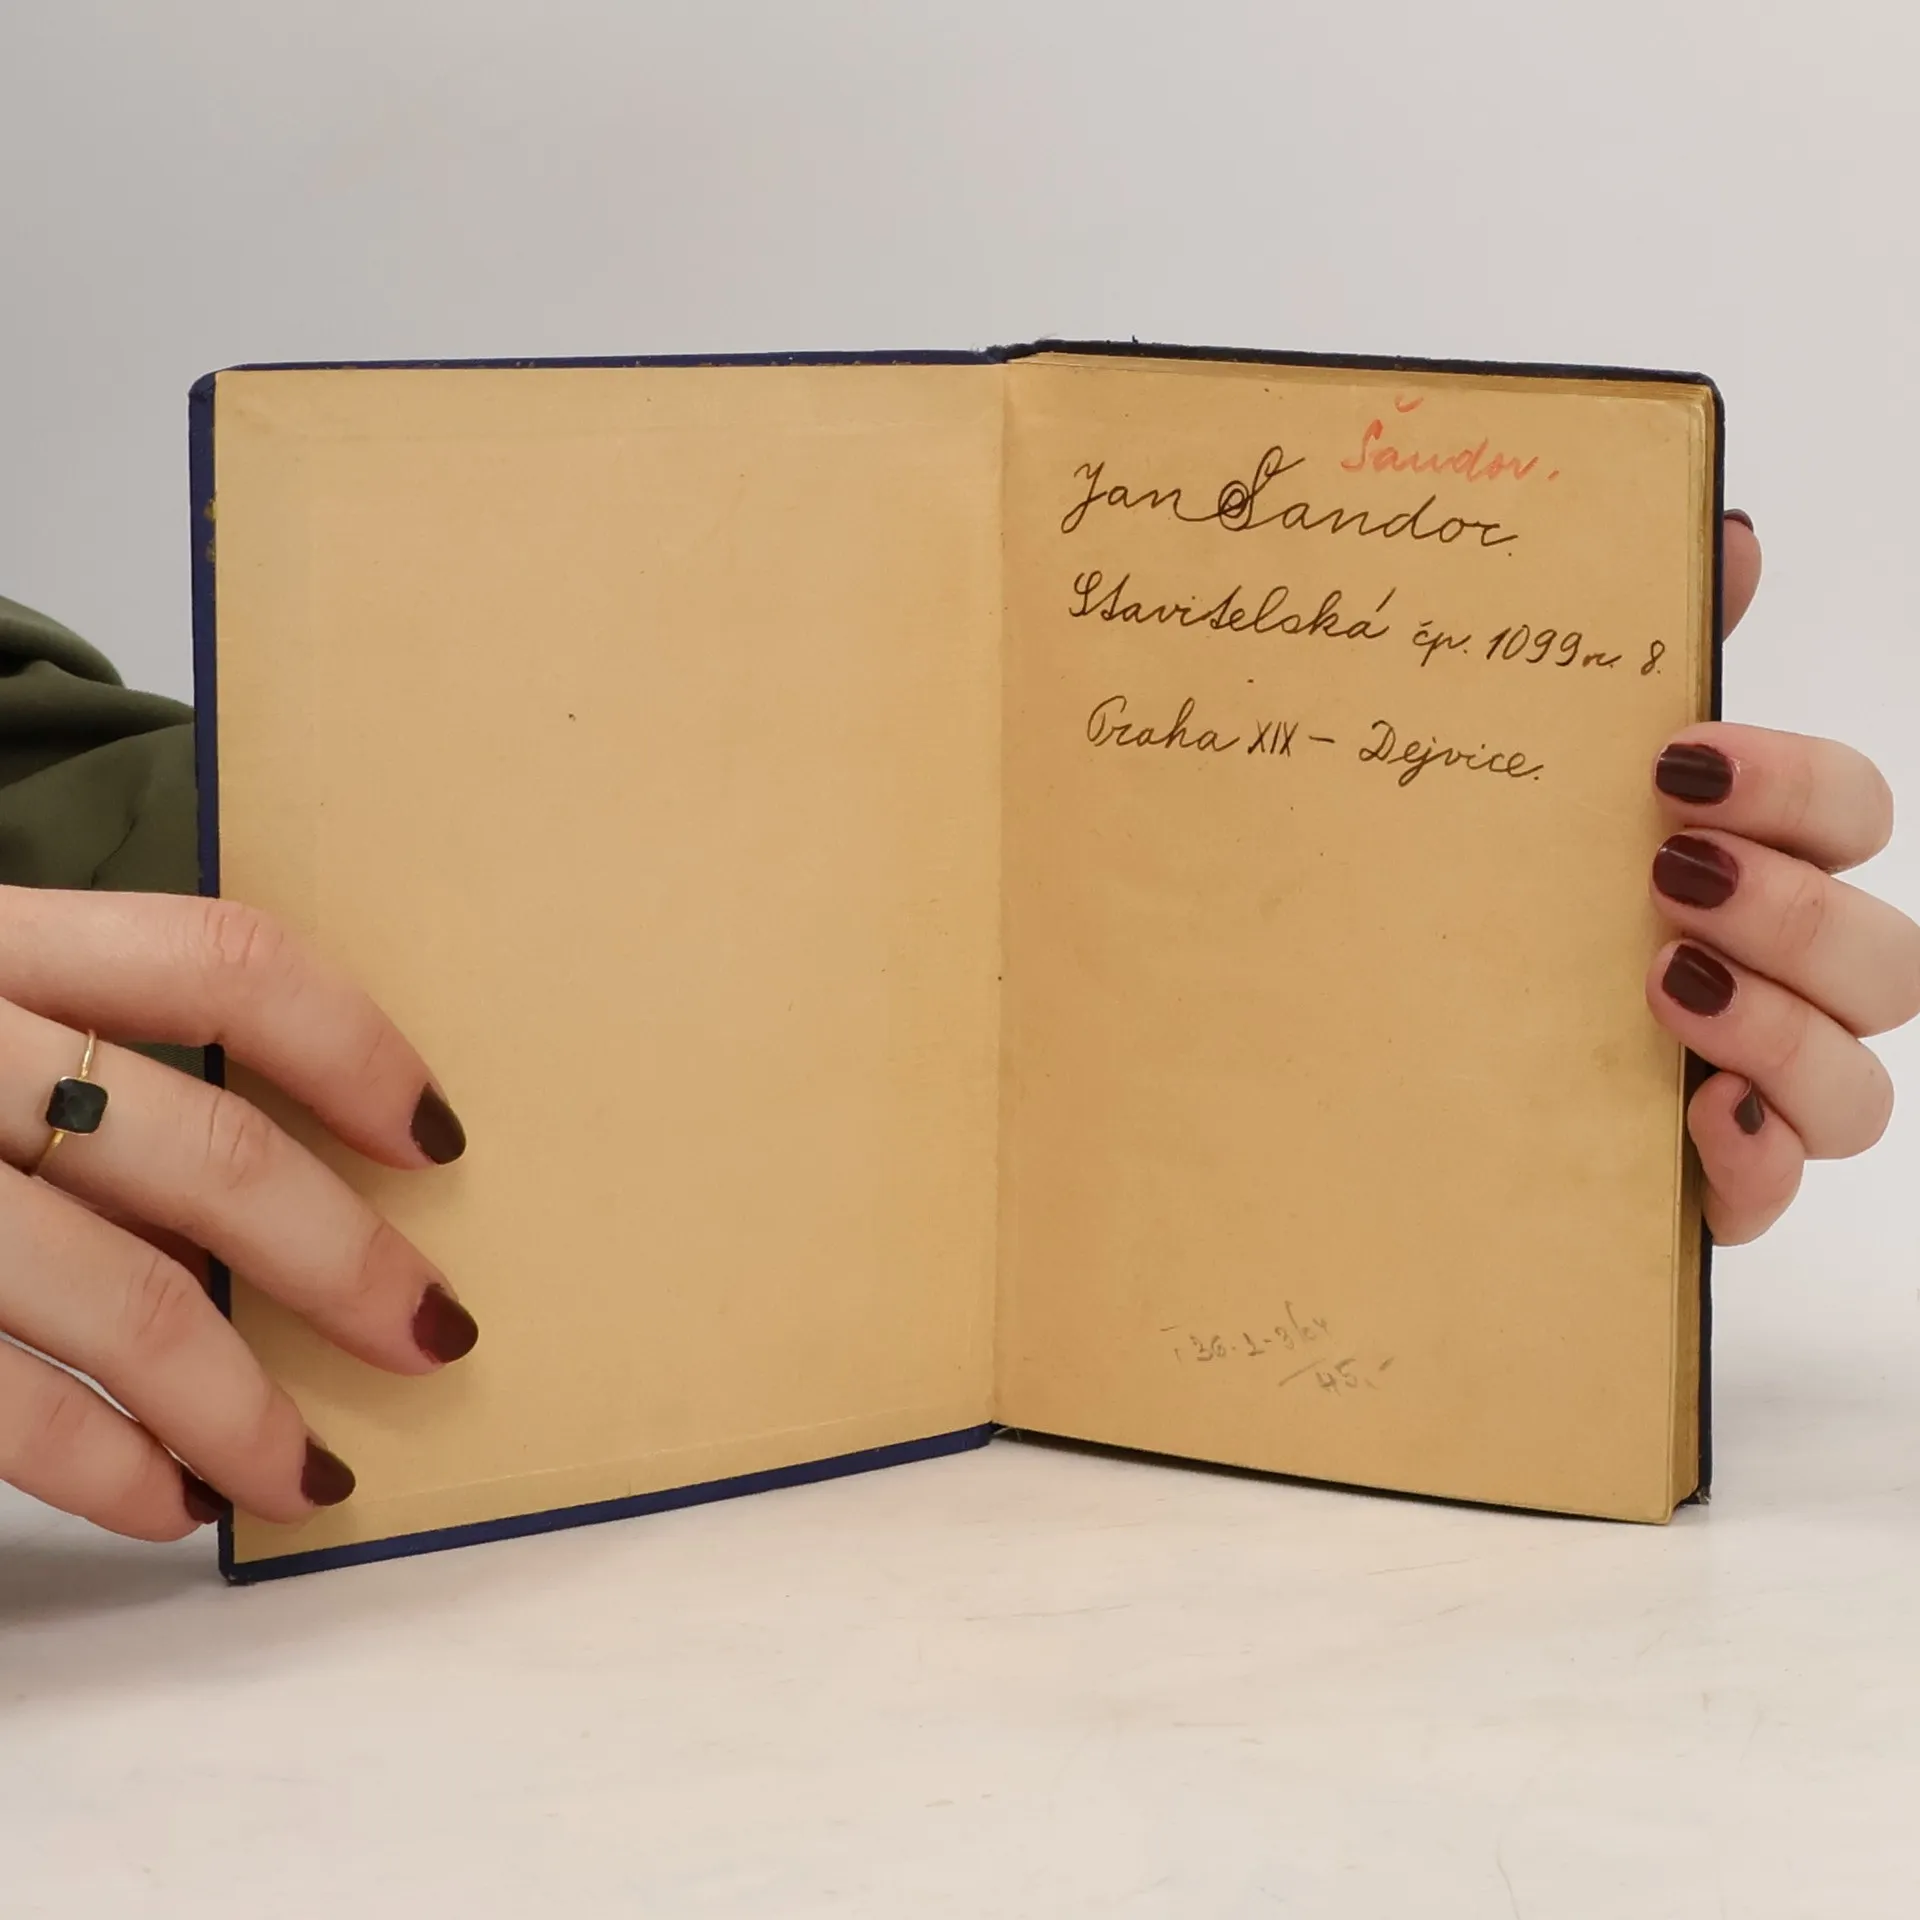 Šandor.
Jan Šandor.
Stavitelská čp. 1099 8.
Praha XIX – Dejvice.
45.-